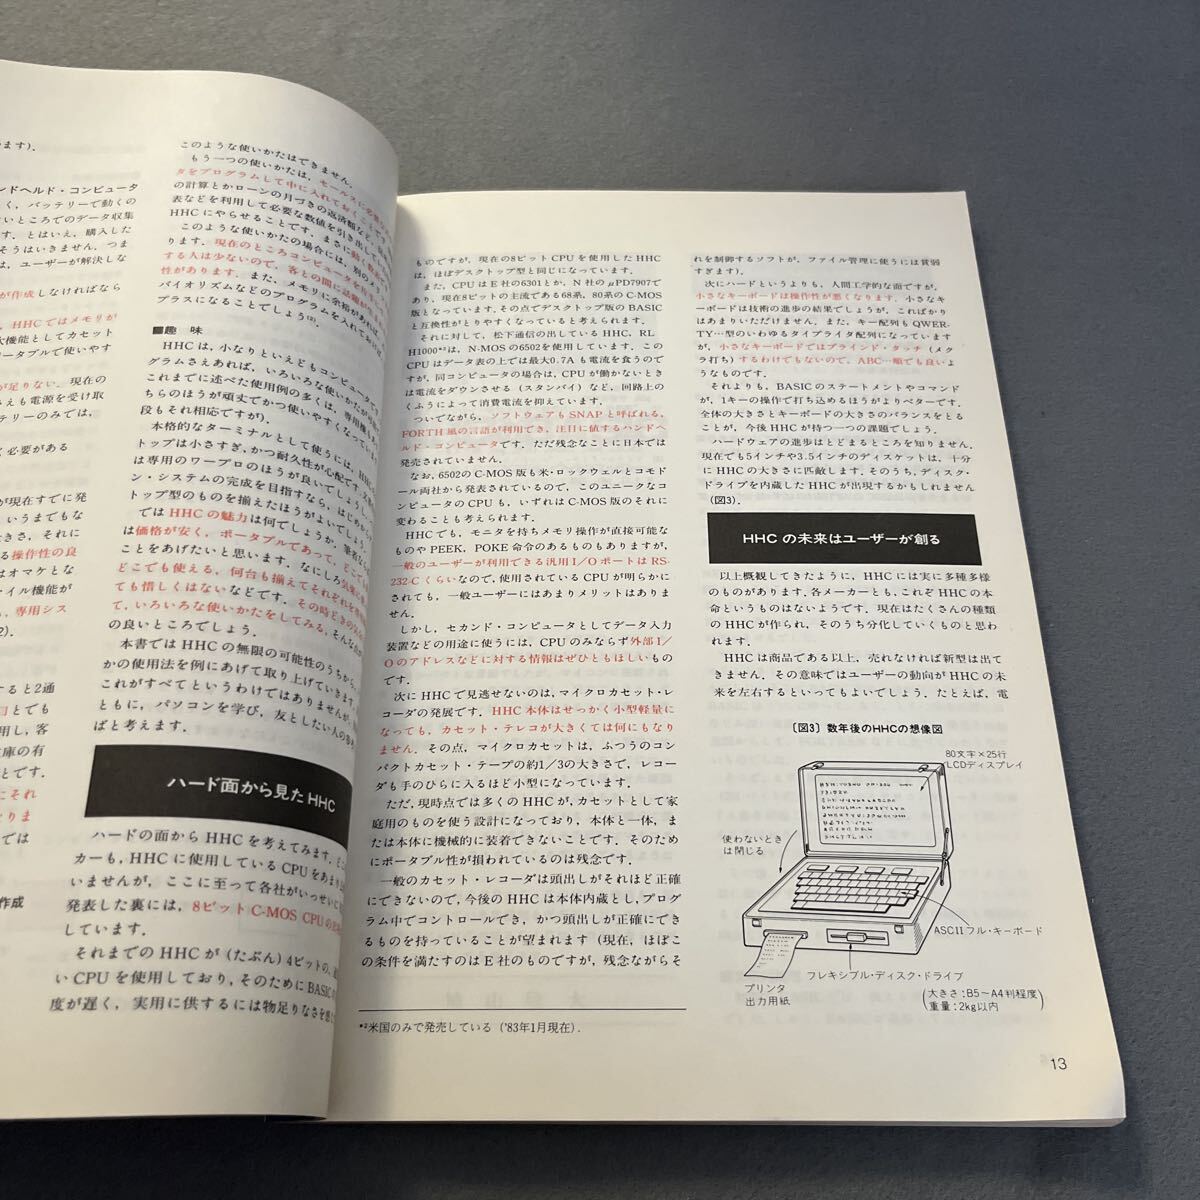 ます).
ンドヘルド・コンピュータ
く，バッテリーで動くの
いところでのデータ収集
す．とはいえ，購入した
そうはいきません．つま
は，ユーザーが解決しな
が作成しなければなら
，HHCではメモリが
機能としてカセット
ータブルで使いやす
が足りない．現在の
さえも電源を受け取
テリーのみでは，
く必要がある
が現在すでに発
いうまでもな
大きさ，それに
る操作性の良
はオマケとな
イル機能が
，専用シス
すると2通
ロとでも
用し，客
庫の有
とです．
にそれ
なりま
では
作成
このような使いかたはできません．
もう一つの使いかたは，セールスに必要な
タをプログラムして中に入れておくこと
の計算とかローンの月づきの返済額など，
表などを利用して必要な数値を引き出して
HHCにやらせることです．まさに動く数表
このような使いかたの場合には，別のメリ
ります．現在のところコンピュータを
する人は少ないので，客との間に話題
性があります．また，メモリに余裕があれば，
バイオリズムなどのプログラムを入れておけば
プラスになることでしょう(2)．
■趣　味
HHCは，小なりといえどもコンピュータです．
グラムさえあれば，いろいろな使いかたが
これまでに述べた使用例の多くは，専用機も
ちらのほうが頑丈でかつ使いやすくなってい
段もそれ相応ですが)．
本格的なターミナルとして使うには，HHC
トップは小すぎ，かつ耐久性が心配です．
は専用のワープロのほうが良いでしょう．
ン・システムの完成を目指すなら，はじめから
トップ型のものを揃えたほうがよいでしょう．
ではHHCの魅力は何でしょうか．筆者なら
は価格が安く，ポータブルであって，どこで
ことをあげたいと思います．なにしろ気軽に
どこでも使える，何台も揃えてそれぞれを専用
ても惜しくはないなどです．その時どきの
て，いろいろな使いかたをしてみる，そんな
の良いところでしょう．
本書ではHHCの無限の可能性のうちから，
かの使用法を例にあげて取り上げていきます．
これがすべてというわけではありませんが，
ともに，パソコンを学び，友としたい人の
ばと考えます．
ハード面から見たHHC
ハードの面からHHCを考えてみます．どこ
カーも，HHCに使用しているCPUをあまり
いませんが，ここに至って各社がいっせいに
発表した裏には，8ビットC-MOS CPUの
しています．
それまでのHHCが(たぶん)4ビットの，
いCPUを使用しており，そのためにBASICの
度が遅く，実用に供するには物足りなさを感じ
ものですが，現在の8ビットCPUを使用したHHC
は，ほぼデスクトップ型と同じになっています．
また，CPUはE社の6301とか，N社のμPD7907で
あり，現在8ビットの主流である68系，80系のC-MOS
版となっています．その点でデスクトップ版のBASIC
と互換性がとりやすくなっていると考えられます．
それに対して，松下通信の出しているHHC，RL
H1000*²は，N-MOSの6502を使用しています．この
CPUはデータ表の上では最大0.7Aも電流を食うので
すが，同コンピュータの場合は，CPUが働かないとき
は電流をダウンさせる（スタンバイ）など，回路上の
くふうによって消費電流を抑えています．
ついでながら，ソフトウェアもSNAPと呼ばれる，
FORTH風の言語が利用でき，注目に値するハンドヘ
ルド・コンピュータです．ただ残念なことに日本では
発売されていません．
なお，6502のC-MOS版も米・ロックウェルとコモド
ール両社から発表されているので，このユニークなコ
ンピュータのCPUも，いずれはC-MOS版のそれに
変わることも考えられます．
HHCでも，モニタを持ちメモリ操作が直接可能な
ものやPEEK，POKE命令のあるものもありますが，
一般のユーザーが利用できる汎用I/OポートはRS-
232-Cくらいなので，使用されているCPUが明らかに
されても，一般ユーザーにはあまりメリットはありま
せん．
しかし，セカンド・コンピュータとしてデータ入力
装置などの用途に使うには，CPUのみならず外部I/
Oのアドレスなどに対する情報はぜひともほしいもの
です．
次にHHCで見逃せないのは，マイクロカセット・レ
コーダの発展です．HHC本体はせっかく小型軽量に
なっても，カセット・テレコが大きくては何にもなり
ません．その点，マイクロカセットは，ふつうのコン
パクトカセット・テープの約1/3の大きさで，レコー
ダも手のひらに入るほど小型になっています．
ただ，現時点では多くのHHCが，カセットとして家
庭用のものを使う設計になっており，本体と一体，ま
たは本体に機械的に装着できないことです．そのため
にポータブル性が損われているのは残念です．
一般のカセット・レコーダは頭出しがそれほど正確
にできないので，今後のHHCは本体内蔵とし，プログ
ラム中でコントロールでき，かつ頭出しが正確にでき
るものを持っていることが望まれます（現在，ほぼこ
の条件を満たすのはE社のものですが，残念ながらそ
*²米国のみで発売している（'83年1月現在）．
れを制御するソフトが，ファイル管理に使うには貧弱
すぎます)．
次にハードというよりも，人間工学的な面ですが，
小さなキーボードは操作性が悪くなります．小さなキ
ーボードは技術の進歩の結果でしょうが，こればかり
はあまりいただけません．また，キー配列もQWER-
TY…型のいわゆるタイプライタ配列になっています
が，小さなキーボードではブラインド・タッチ（メク
ラ打ち）するわけでもないので，ABC…順でも良いよ
うなものです．
それよりも，BASICのステートメントやコマンド
が，1キーの操作で打ち込めるほうがよりベターです．
全体の大きさとキーボードの大きさのバランスをとる
ことが，今後HHCが持つ一つの課題でしょう．
ハードウェアの進歩はとどまるところを知りません．
現在でも5インチや3.5インチのディスケットは，十分
にHHCの大きさに匹敵します．そのうち，ディスク・
ドライブを内蔵したHHCが出現するかもしれません
(図3)．
HHCの未来はユーザーが創る
以上概観してきたように，HHCには実に多種多様
のものがあります．各メーカーとも，これぞHHCの本
命というものはないようです．現在はたくさんの種類
のHHCが作られ，そのうち分化していくものと思わ
れます．
HHCは商品である以上，売れなければ新型は出て
きません．その意味ではユーザーの動向がHHCの未
来を左右するといってもよいでしょう．たとえば，電
〔図3〕数年後のHHCの想像図
80文字×25行
LCDディスプレイ
使わないとき
は閉じる
ASCIIフル・キーボード
フレキシブル・ディスク・ドライブ
プリンタ
出力用紙
(大きさ：B5〜A4判程度
重量：2kg以内)
13